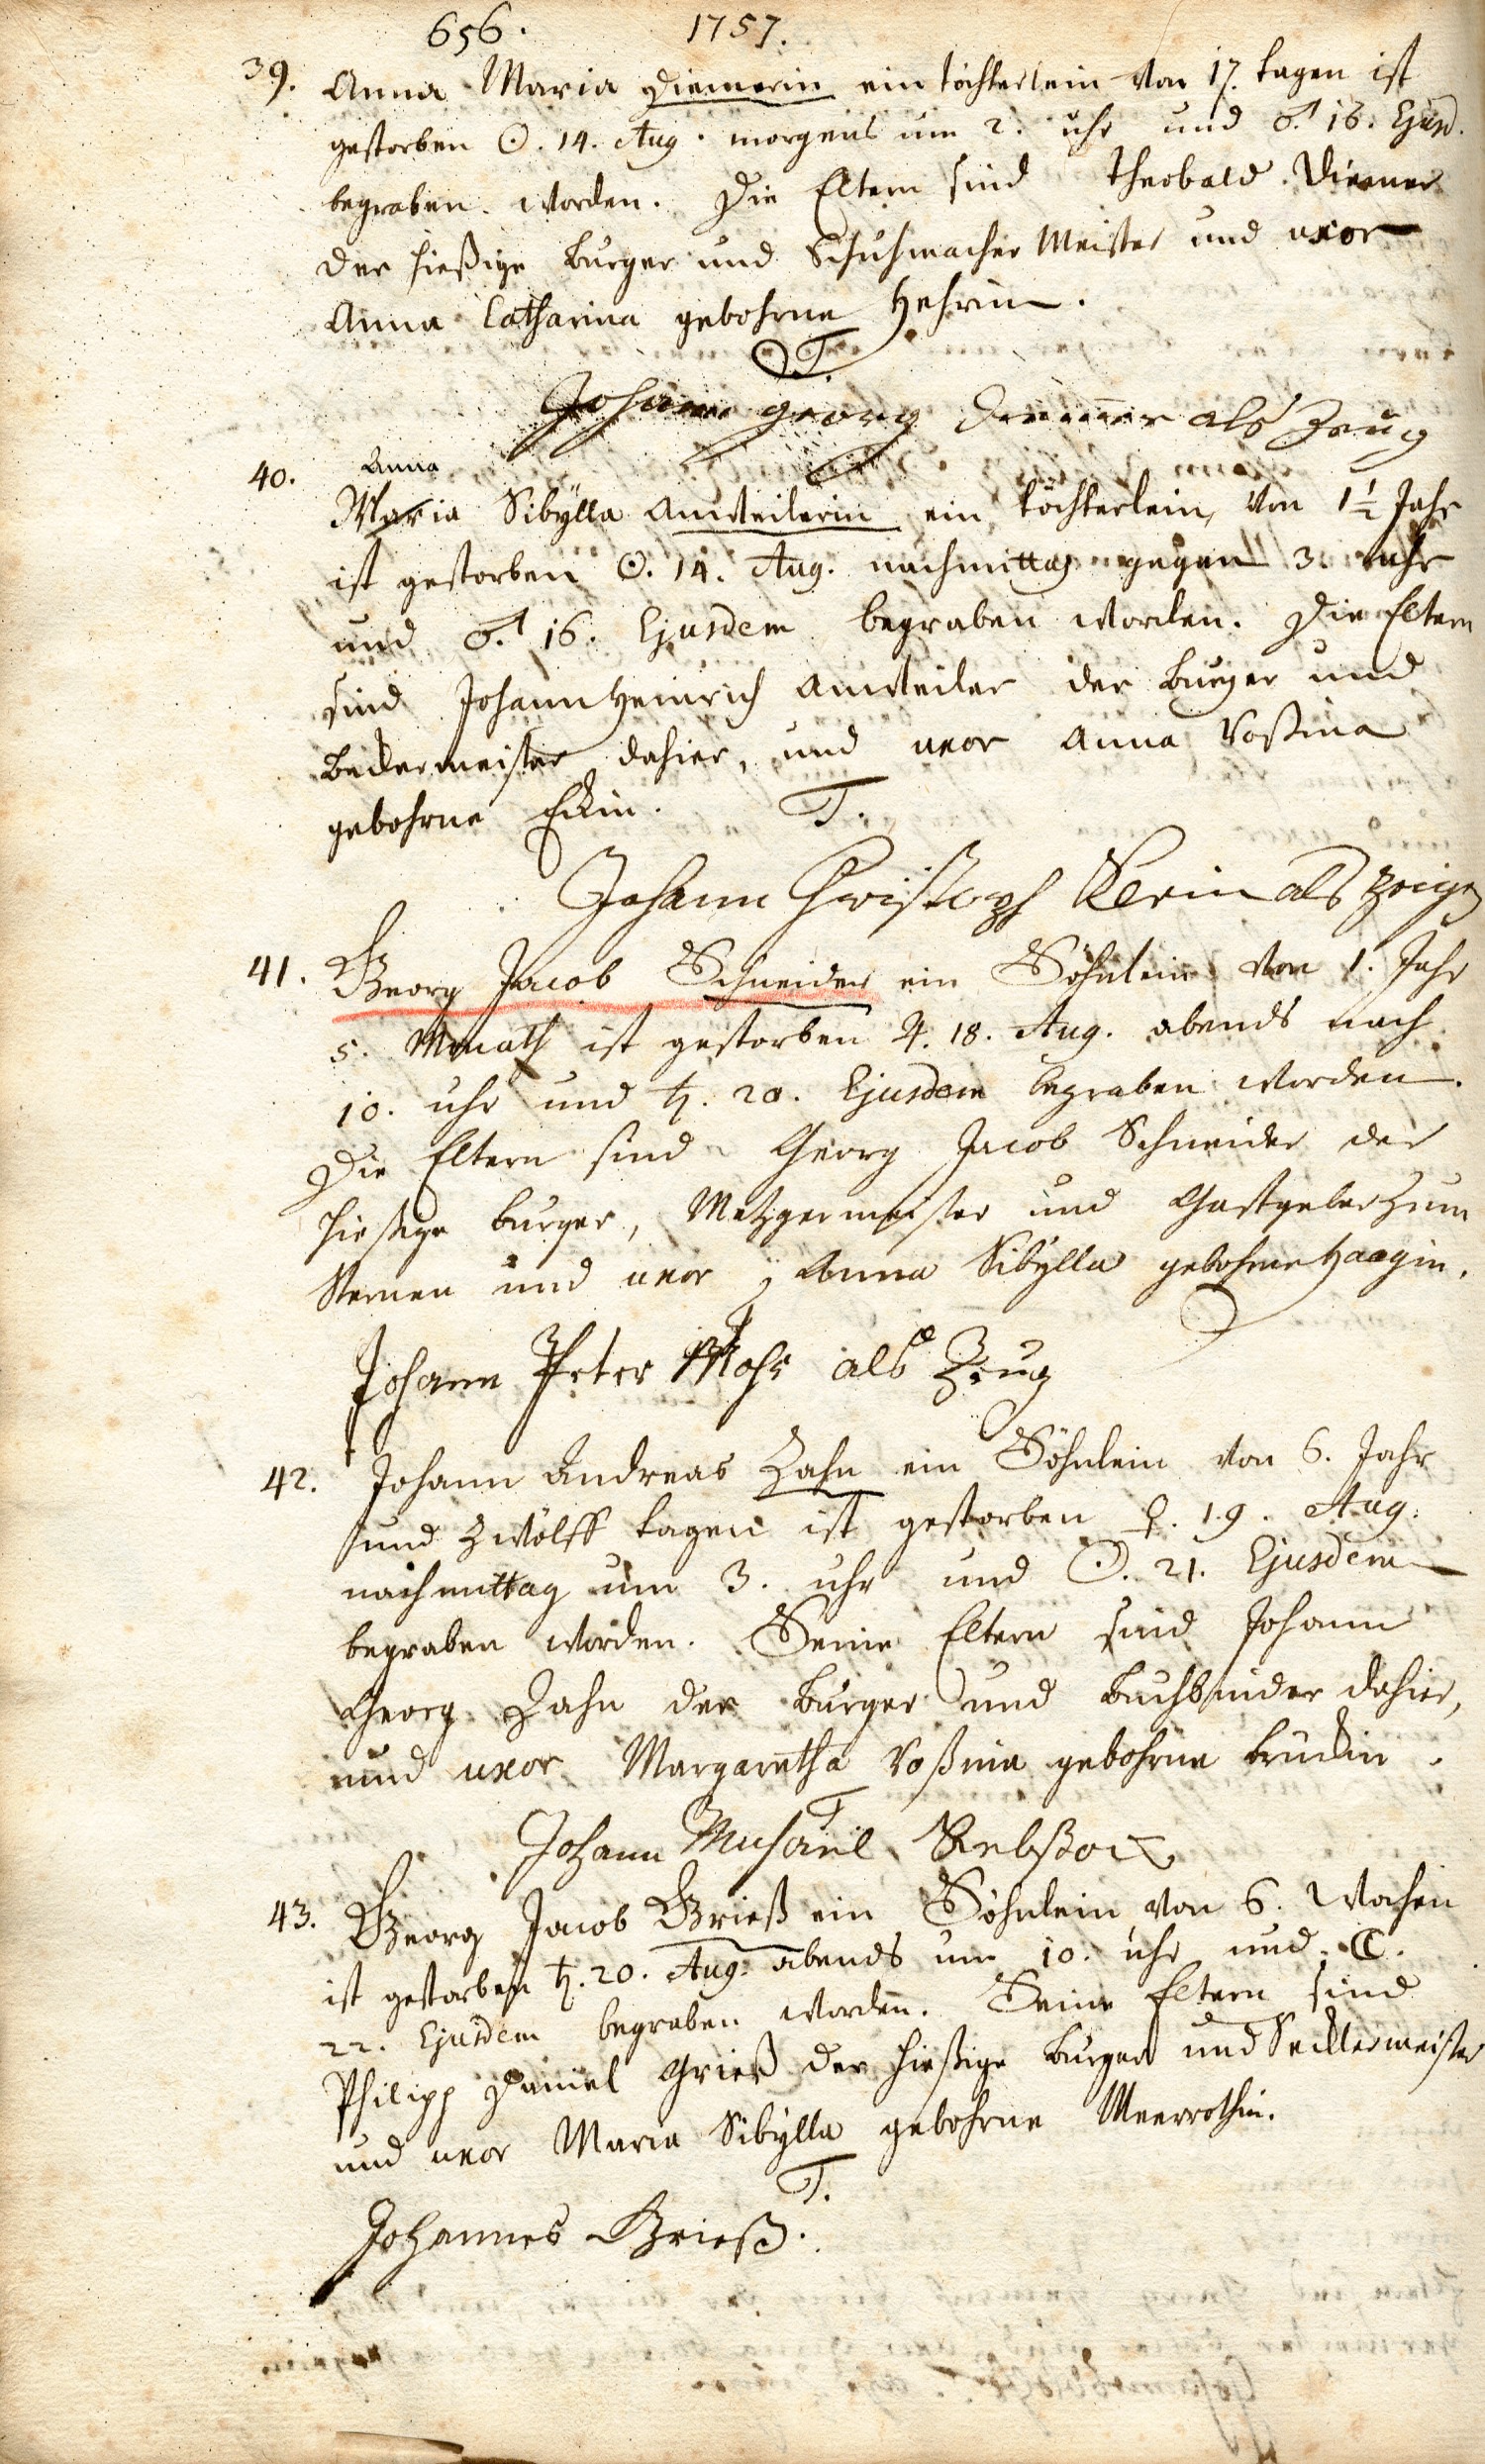 656. 1757.
39. Anna Maria Diemerin ein töchterlein von 17. tagen ist
gestorben ☉. 14. Aug. morgens um 2. uhr und ♂. 16. Ejusd.
begraben worden. Die Eltern sind Theobald Diemer
der hießige Burger und Schuhmacher Meister und uxor
Anna Catharina gebohrne Hehrin.
T.
Johann Georg Diemer als Zeug
40. Anna
Maria Sibÿlla Anweilerin ein töchterlein, von 1½ Jahr
ist gestorben ☉. 14. Aug. nachmittag gegen 3. uhr
und ♂. 16. Ejusdem begraben worden. Die Eltern
sind Johann Heinrich Anweiler der Burger und
Beckermeister dahier, und uxor Anna Rosina
gebohrne Eckin. T.
Johann Christoph Klein als Zeige
41. Georg Jacob Schneider ein Söhnlein von 1. Jahr
5. Monath ist gestorben ♃. 18. Aug. abends nach
10. uhr und ♄. 20. Ejusdem begraben worden.
Die Eltern sind Georg Jacob Schneider der
hiesige burger, Metzgermeister und Gastgeber zum
Sternen und uxor Anna Sibÿlla gebohrne Haagin.
Johann Peter Mohr als Zeug
42. Johann Andreas Zahn ein Söhnlein von 6. Jahr
und zwölff tagen ist gestorben ♀. 19. Aug.
nachmittag um 3. uhr und ☉. 21. Ejusdem
begraben worden. Seine Eltern sind Johann
Georg Zahn der Burger und Buchbinder dahier,
und uxor Margaretha Roßina gebohrne Brückin.
T
Johann Michael Rebstock
43. Georg Jacob Grieß ein Söhnlein von 6. Wochen
ist gestorben ♄. 20. Aug. abends um 10. uhr und ☾.
22. Ejusdem begraben worden. Seine Eltern sind
Philipp Daniel Grieß der hießige Burger und Seilermeister
und uxor Maria Sibÿlla gebohrne Meerrothin.
T.
Johannes Grieß.